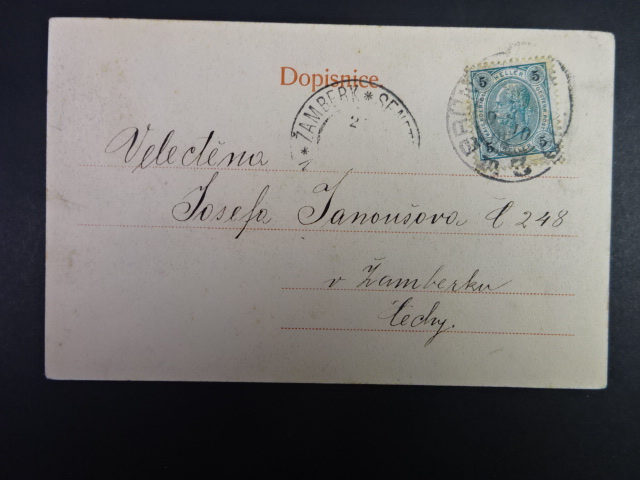 Dopisnice
ŽAMBERK * SENFT
2
5 HELLER 5
5 HELLER 5
Velectěna
Josefa Janoušova č 248
v Žamberku
Čechy.